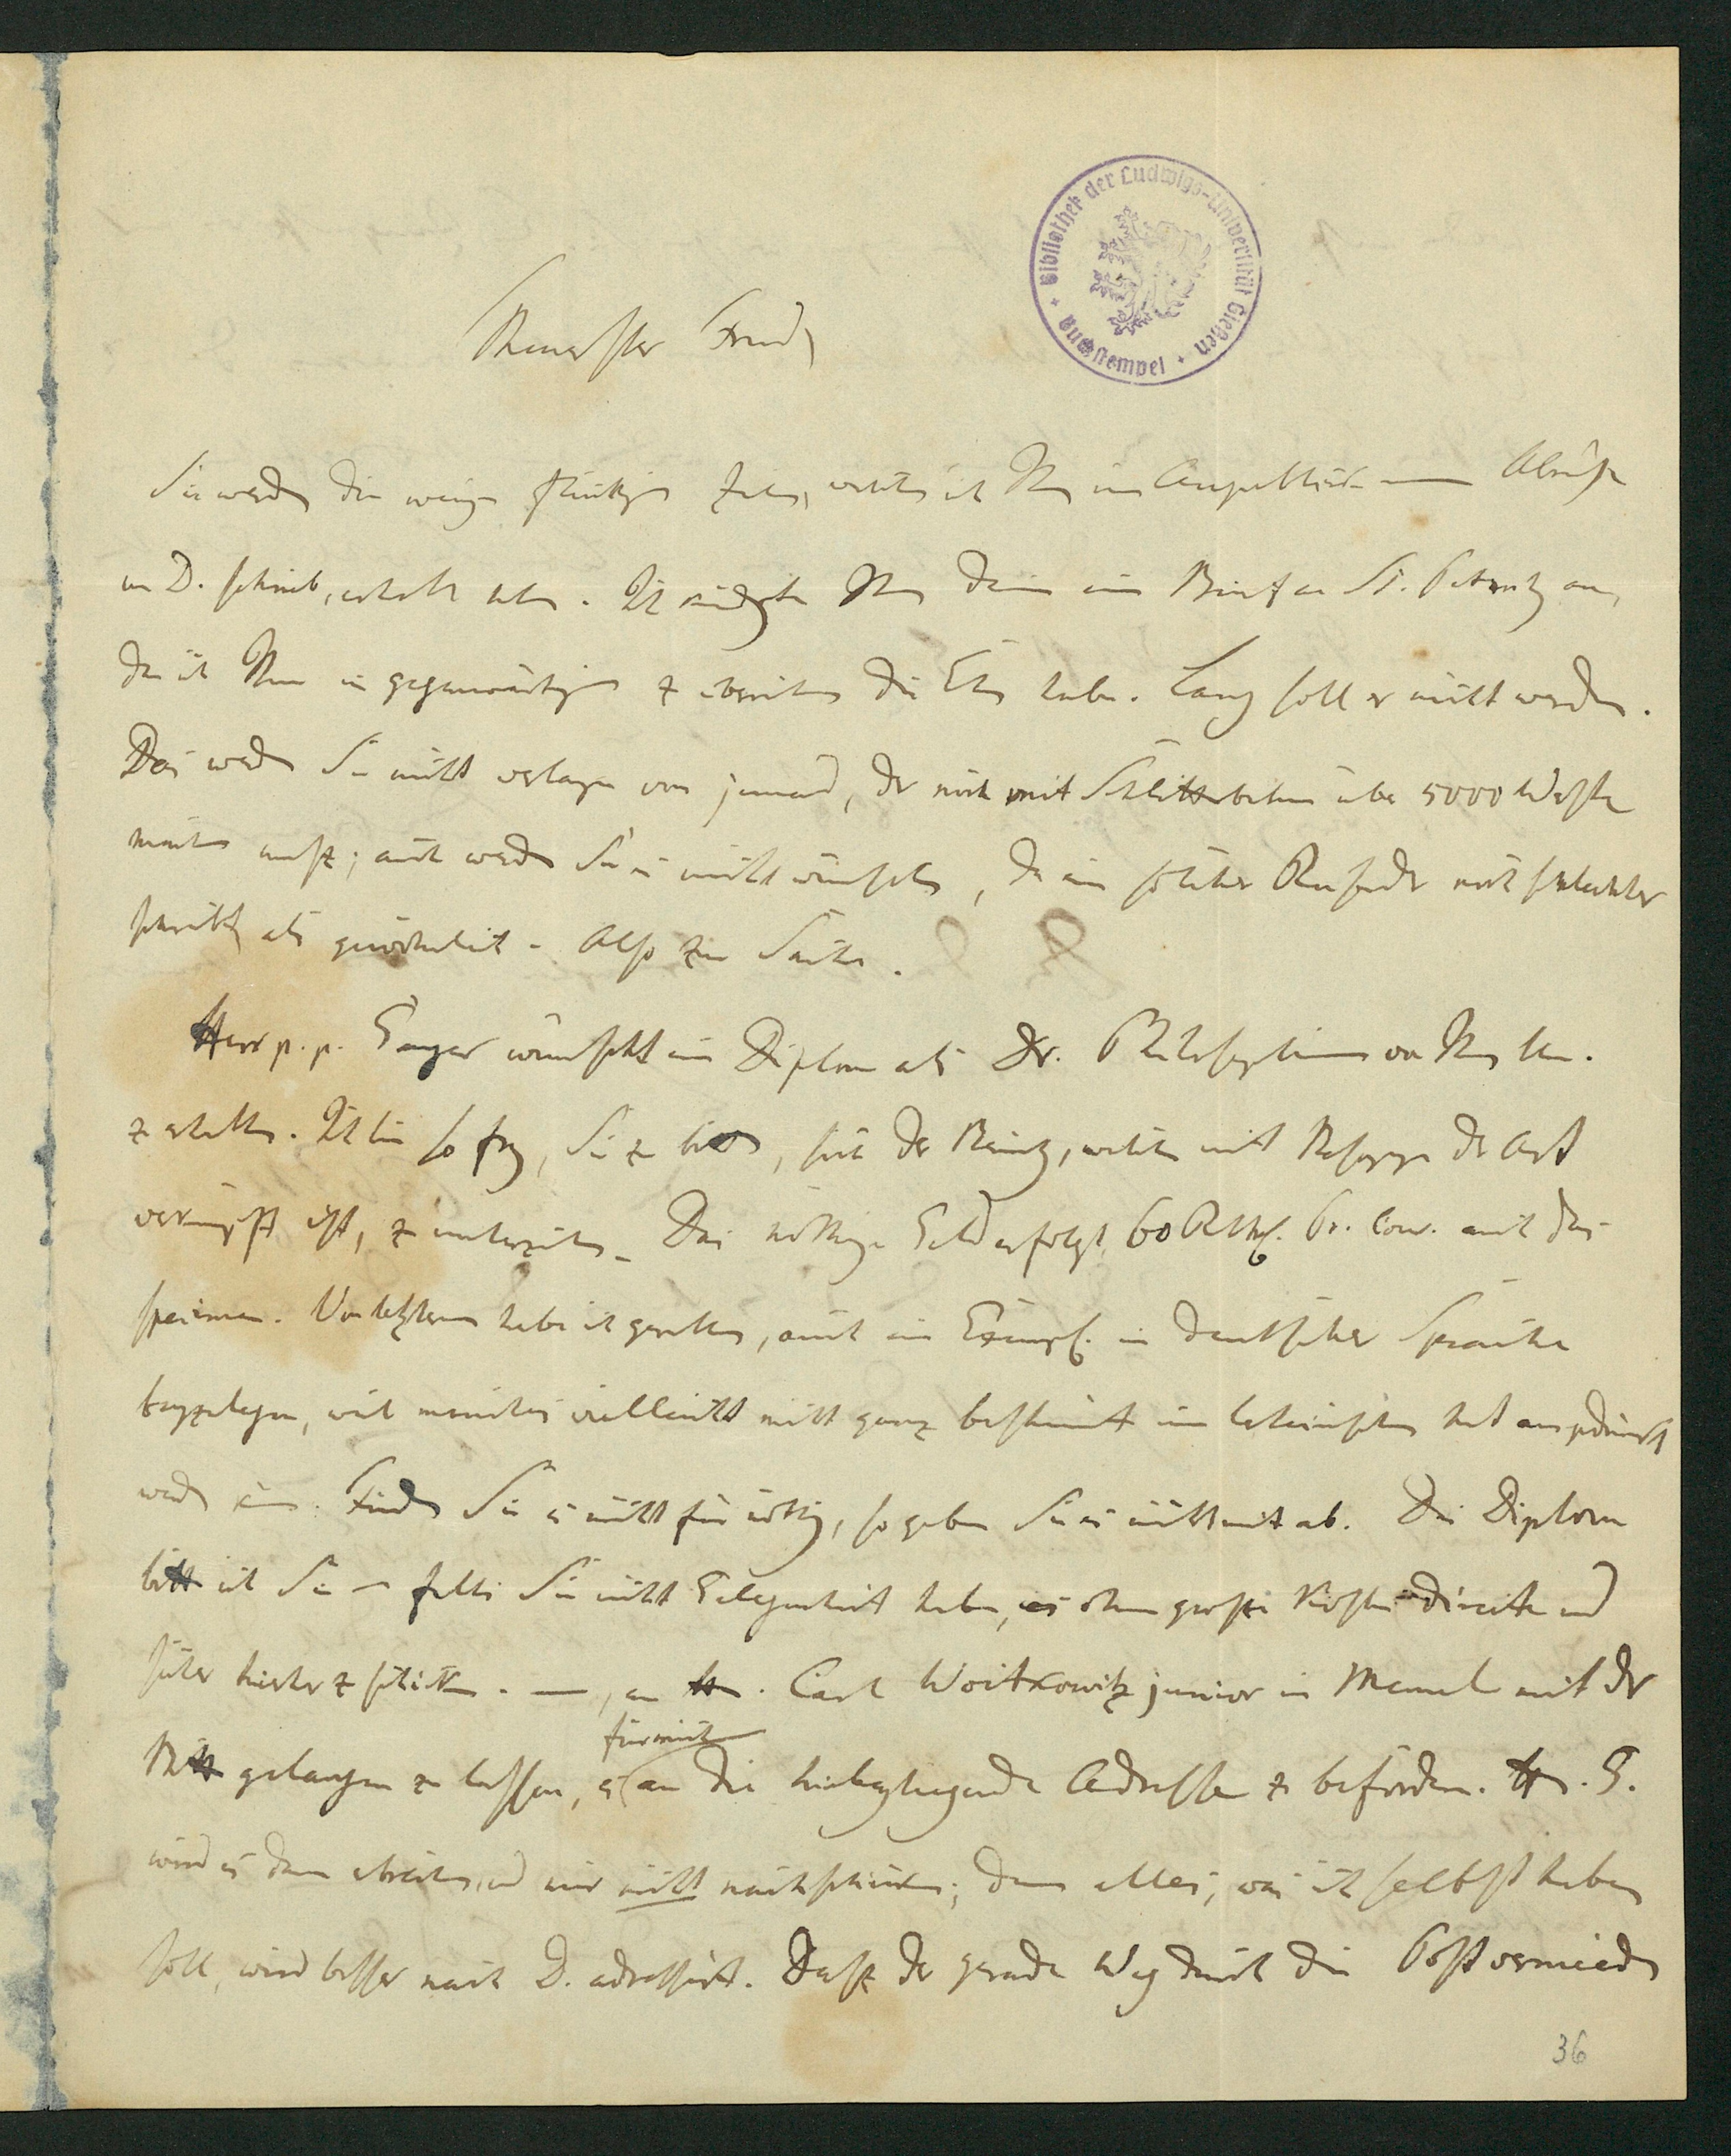 Bibliothek der Ludwigs-Universität Gießen
Buchstempel
Theuerster Freund
Sie werden die wenigen flüchtigen Zeilen, welche ich Ihnen im Augenblick meiner Abreise
von D. schrieb, erhalten haben. Ich kündigte Ihnen darin einen Brief aus St. Petersburg an,
den ich Ihnen in gegenwärtigem zu überreichen die Ehre habe. Lang soll er nicht werden.
Das werden Sie nicht verlangen von jemand, der noch mit Schlittenbahn über 5000 Werste
machen muß; auch werden Sie es nicht wünschen, da ein solcher Reisender noch schlechter
schreibt als gewöhnlich. Also zur Sache.
Herr p. p. wünscht ein Diplom als Dr. Philosophiae von Ihnen
zu erhalten. Ich bin so frey, Sie zu bitten, sich der Bemühung, welche mit Besorgung der Art
verknüpft ist, zu unterziehen. Das nöthige Geld erfolgt 60 Rthlr. Pr. Cour. mit dem
specimen. Von letzterem habe ich gerathen, auch ein Exempl. in deutscher Sprache
beyzulegen, weil manches vielleicht nicht ganz bestimmt im lateinischen hat ausgedrückt
werden können. Finden Sie es nicht für nöthig, so geben Sie es nicht mit ab. Das Diplom
bitte ich Sie – falls Sie nicht Gelegenheit haben, es ohne große Kosten directe und
sicher hierher zu schicken. –, an Hn. Carl Woitkowitz junior in Memel mit der
für mich
Bitte gelangen zu lassen, es an die hierbeyliegende Adresse zu befördern. Hr. G.
wird es dann erhalten und mir nicht nachschicken; denn alles, was ich selbst haben
soll, wird besser nach D. adressirt. Daß der gerade Weg durch die Post vermieden
36